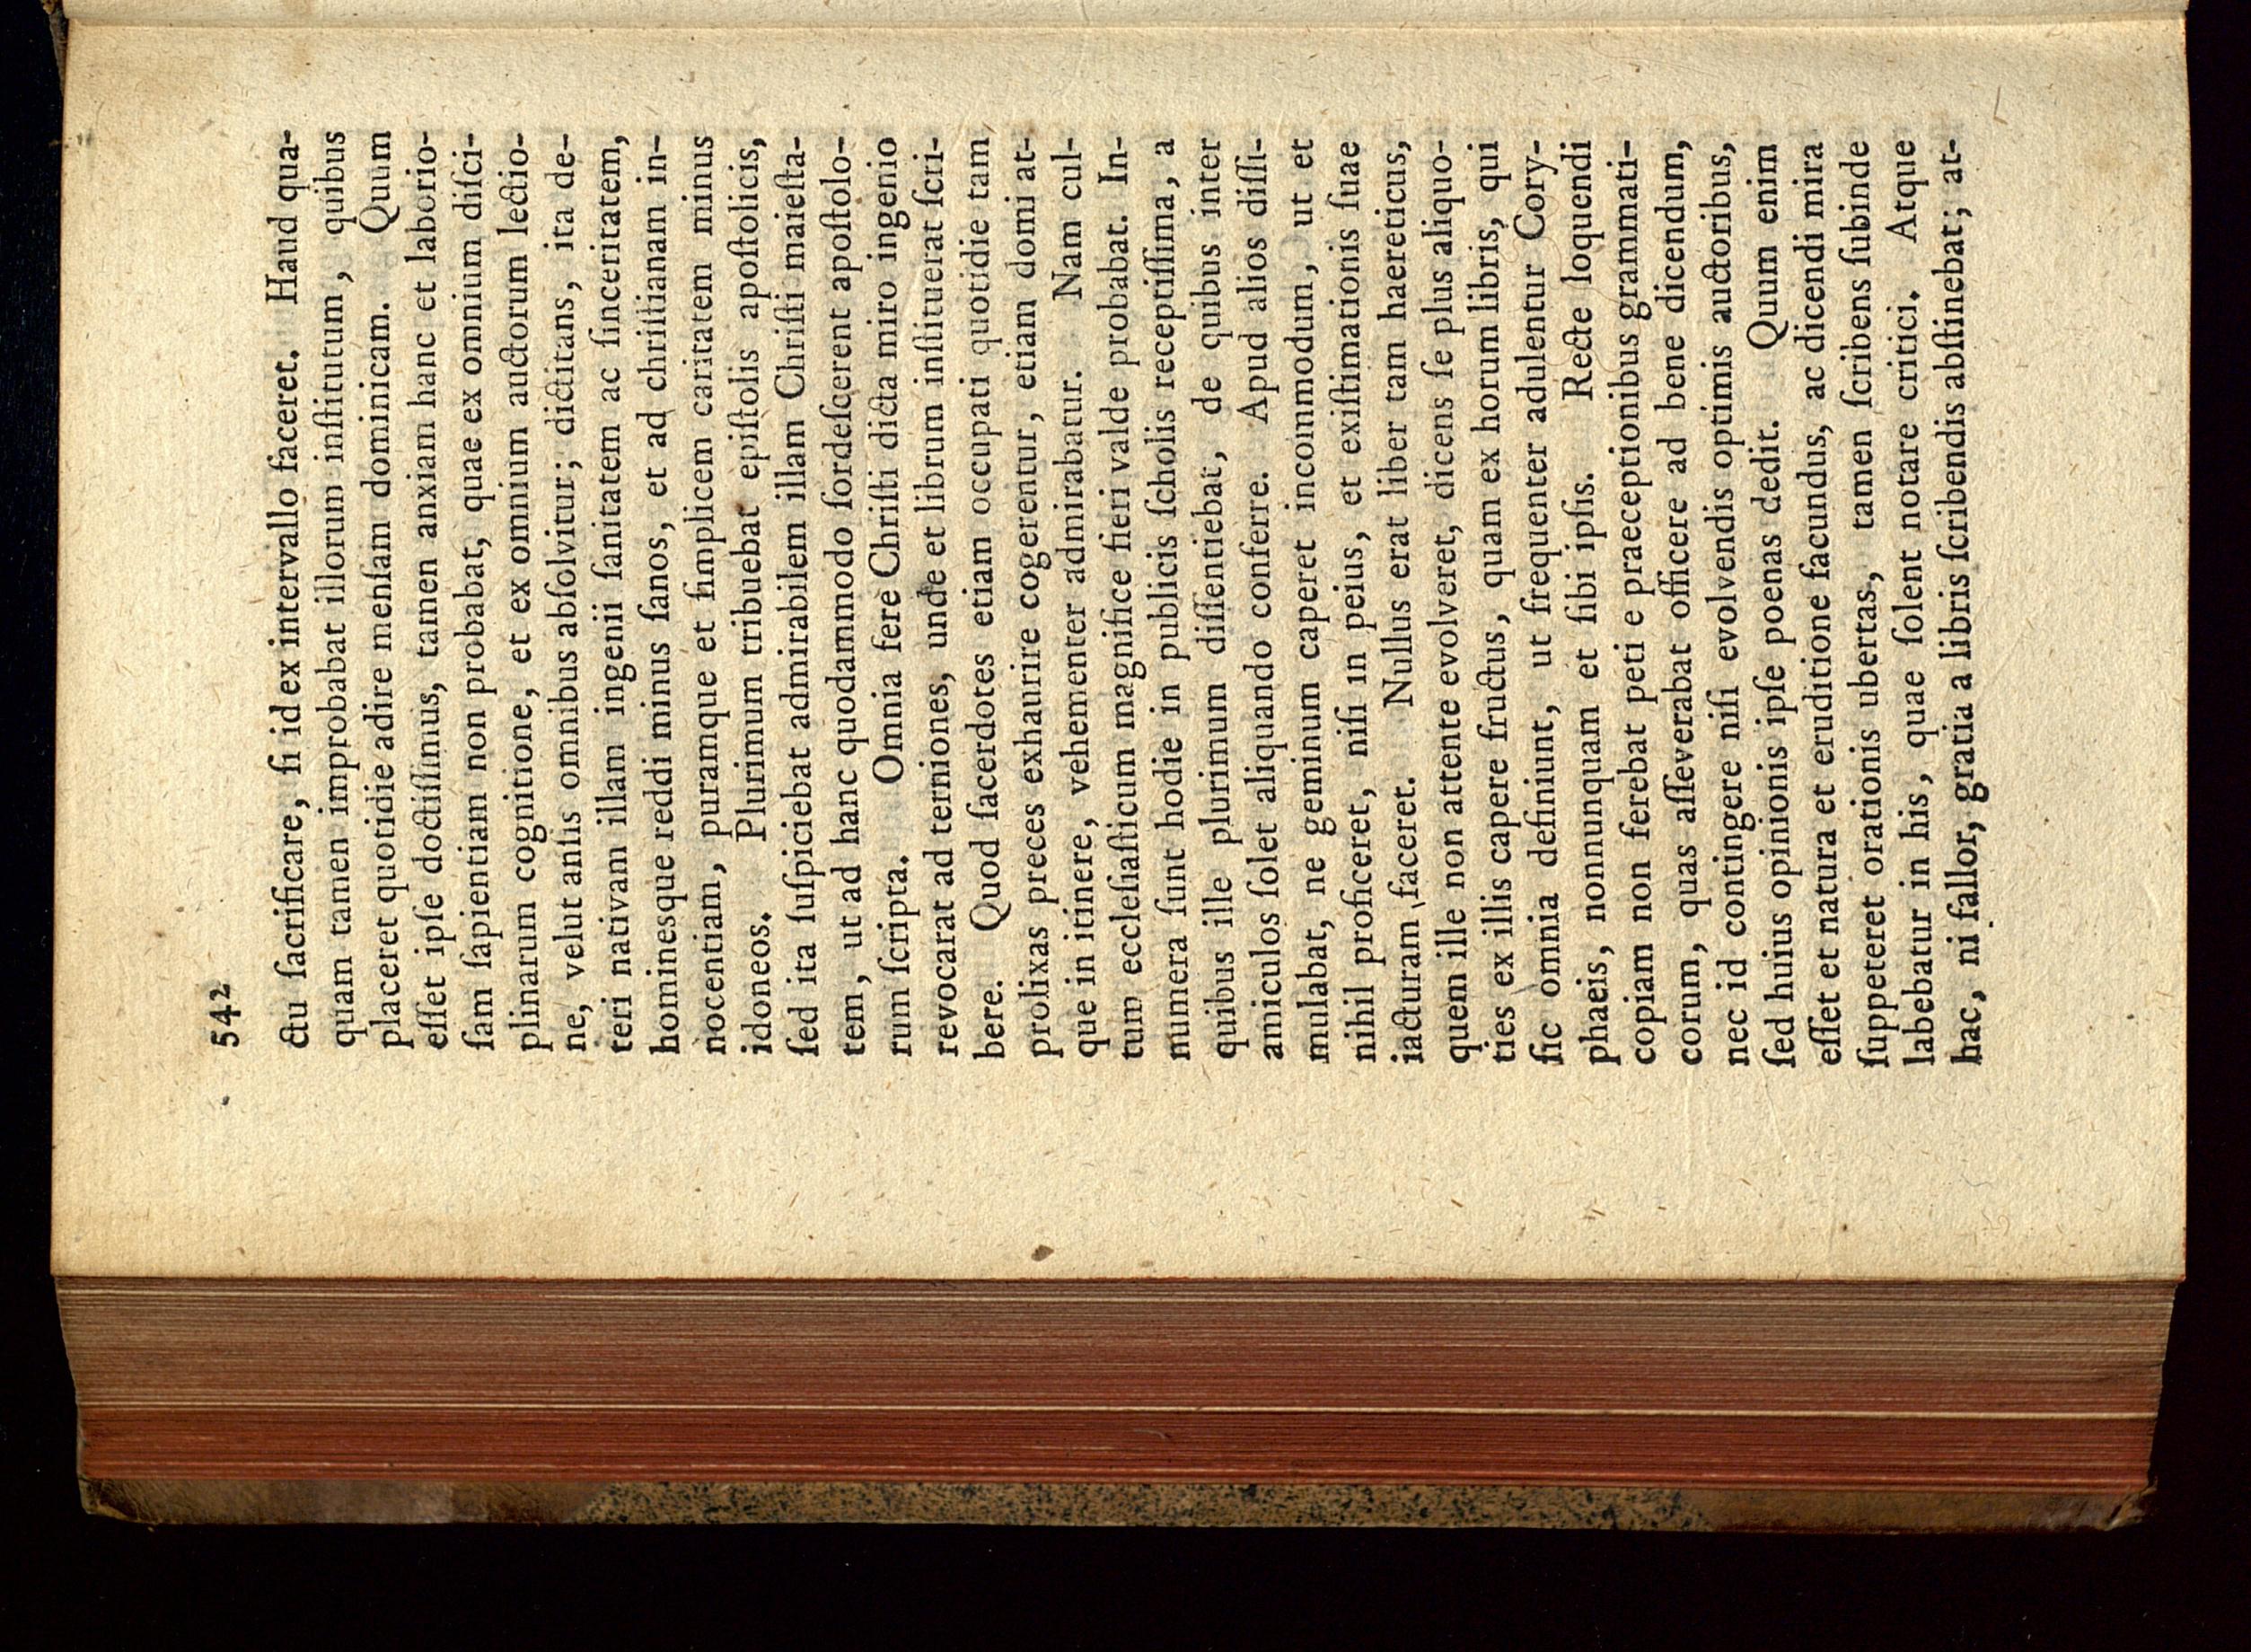 542
ctu ſacrificare, ſi id ex intervallo faceret. Haud qua-
quam tamen improbabat illorum inſtitutum, quibus
placeret quotidie adire menſam dominicam. Quum
eſſet ipſe doctiſſimus, tamen anxiam hanc et laborio-
ſam ſapientiam non probabat, quae ex omnium diſci-
plinarum cognitione, et ex omnium auctorum lectio-
ne, velut anſis omnibus abſolvitur; dictitans, ita de-
teri nativam illam ingenii ſanitatem ac ſinceritatem,
hominesque reddi minus ſanos, et ad chriſtianam in-
nocentiam, puramque et ſimplicem caritatem minus
idoneos. Plurimum tribuebat epiſtolis apoſtolicis,
ſed ita ſuſpiciebat admirabilem illam Chriſti maieſta-
tem, ut ad hanc quodammodo ſordeſcerent apoſtolo-
rum ſcripta. Omnia fere Chriſti dicta miro ingenio
revocarat ad terniones, unde et librum inſtituerat ſcri-
bere. Quod ſacerdotes etiam occupati quotidie tam
prolixas preces exhaurire cogerentur, etiam domi at-
que in itinere, vehementer admirabatur. Nam cul-
tum eccleſiaſticum magnifice fieri valde probabat. In-
numera ſunt hodie in publicis ſcholis receptiſſima, a
quibus ille plurimum diſſentiebat, de quibus inter
amiculos ſolet aliquando conferre. Apud alios diſſi-
mulabat, ne geminum caperet incommodum, ut et
nihil proficeret, niſi in peius, et exiſtimationis ſuae
iacturam faceret. Nullus erat liber tam haereticus,
quem ille non attente evolveret, dicens ſe plus aliquo-
ties ex illis capere fructus, quam ex horum libris, qui
ſic omnia definiunt, ut frequenter adulentur Cory-
phaeis, nonnunquam et ſibi ipſis. Recte loquendi
copiam non ferebat peti e praeceptionibus grammati-
corum, quas aſſeverabat officere ad bene dicendum,
nec id contingere niſi evolvendis optimis auctoribus,
ſed huius opinionis ipſe poenas dedit. Quum enim
eſſet et natura et eruditione facundus, ac dicendi mira
ſuppeteret orationis ubertas, tamen ſcribens ſubinde
labebatur in his, quae ſolent notare critici. Atque
hac, ni fallor, gratia a libris ſcribendis abſtinebat; at-